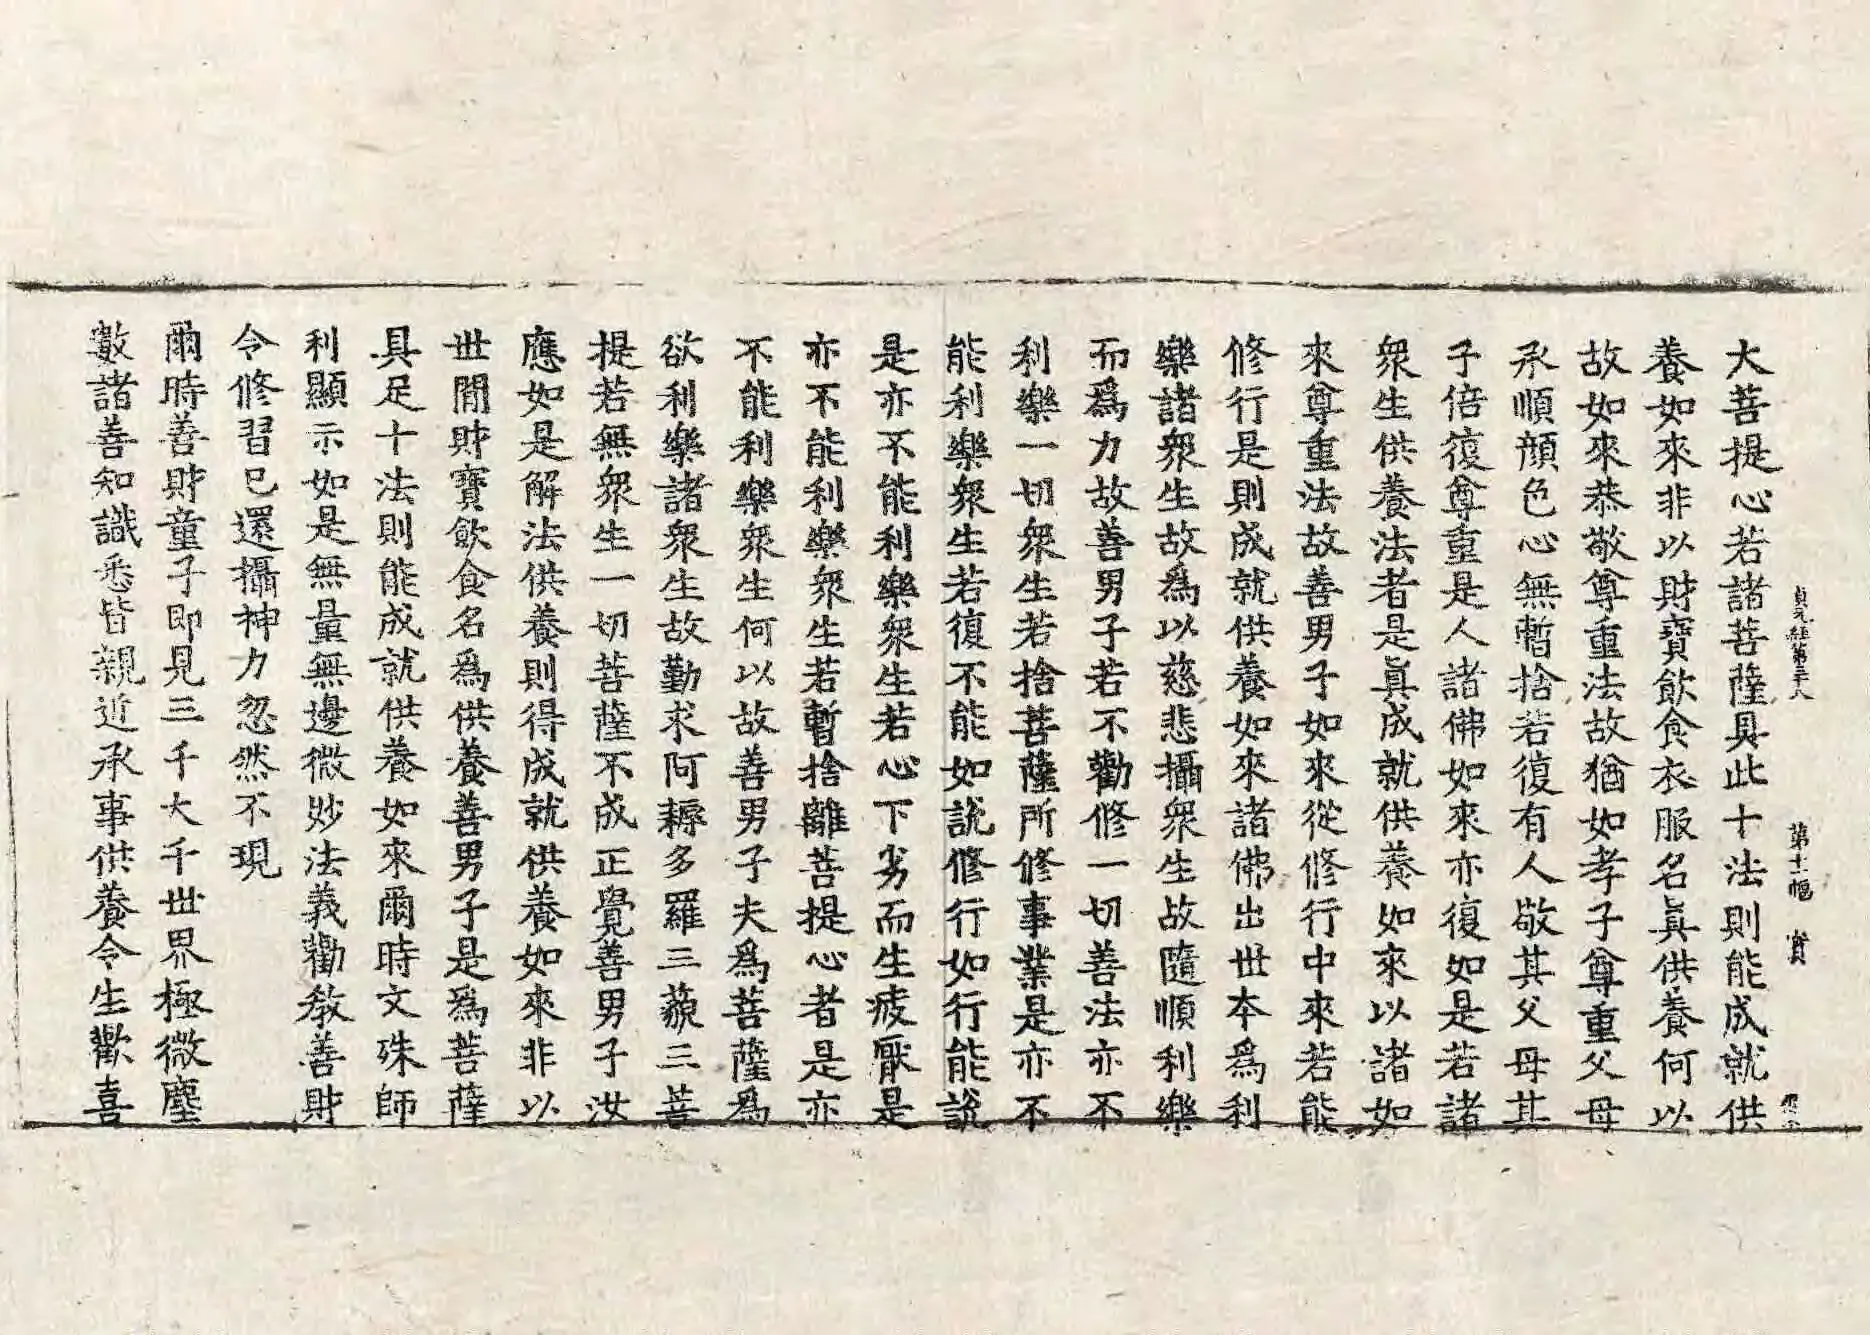 貞元經第三十八 第十一幅 實
大菩提心若諸菩薩具此十法則能成就供
養如來非以財寶飲食衣服名眞供養何以
故如來恭敬尊重法故猶如孝子尊重父母
承順顔色心無暫捨若復有人敬其父母其
子倍復尊重是人諸佛如來亦復如是若諸
衆生供養法者是眞成就供養如來以諸如
來尊重法故善男子如來從修行中來若能
修行是則成就供養如來諸佛出世本爲利
樂諸衆生故爲以慈悲攝衆生故隨順利樂
而爲力故善男子若不勸修一切善法亦不
利樂一切衆生若捨菩薩所修事業是亦不
能利樂衆生若復不能如說修行如行能說
是亦不能利樂衆生若心下劣而生疲厭是
亦不能利樂衆生若暫捨離菩提心者是亦
不能利樂衆生何以故善男子夫爲菩薩爲
欲利樂諸衆生故勤求阿耨多羅三藐三菩
提若無衆生一切菩薩不成正覺善男子汝
應如是解法供養則得成就供養如來非以
世間財寶飮食名爲供養善男子是爲菩薩
具足十法則能成就供養如來爾時文殊師
利顯示如是無量無邊微妙法義勸教善財
令修習已還攝神力忽然不現
爾時善財童子即見三千大千世界極微塵
數諸善知識悉皆親近承事供養令生歡喜